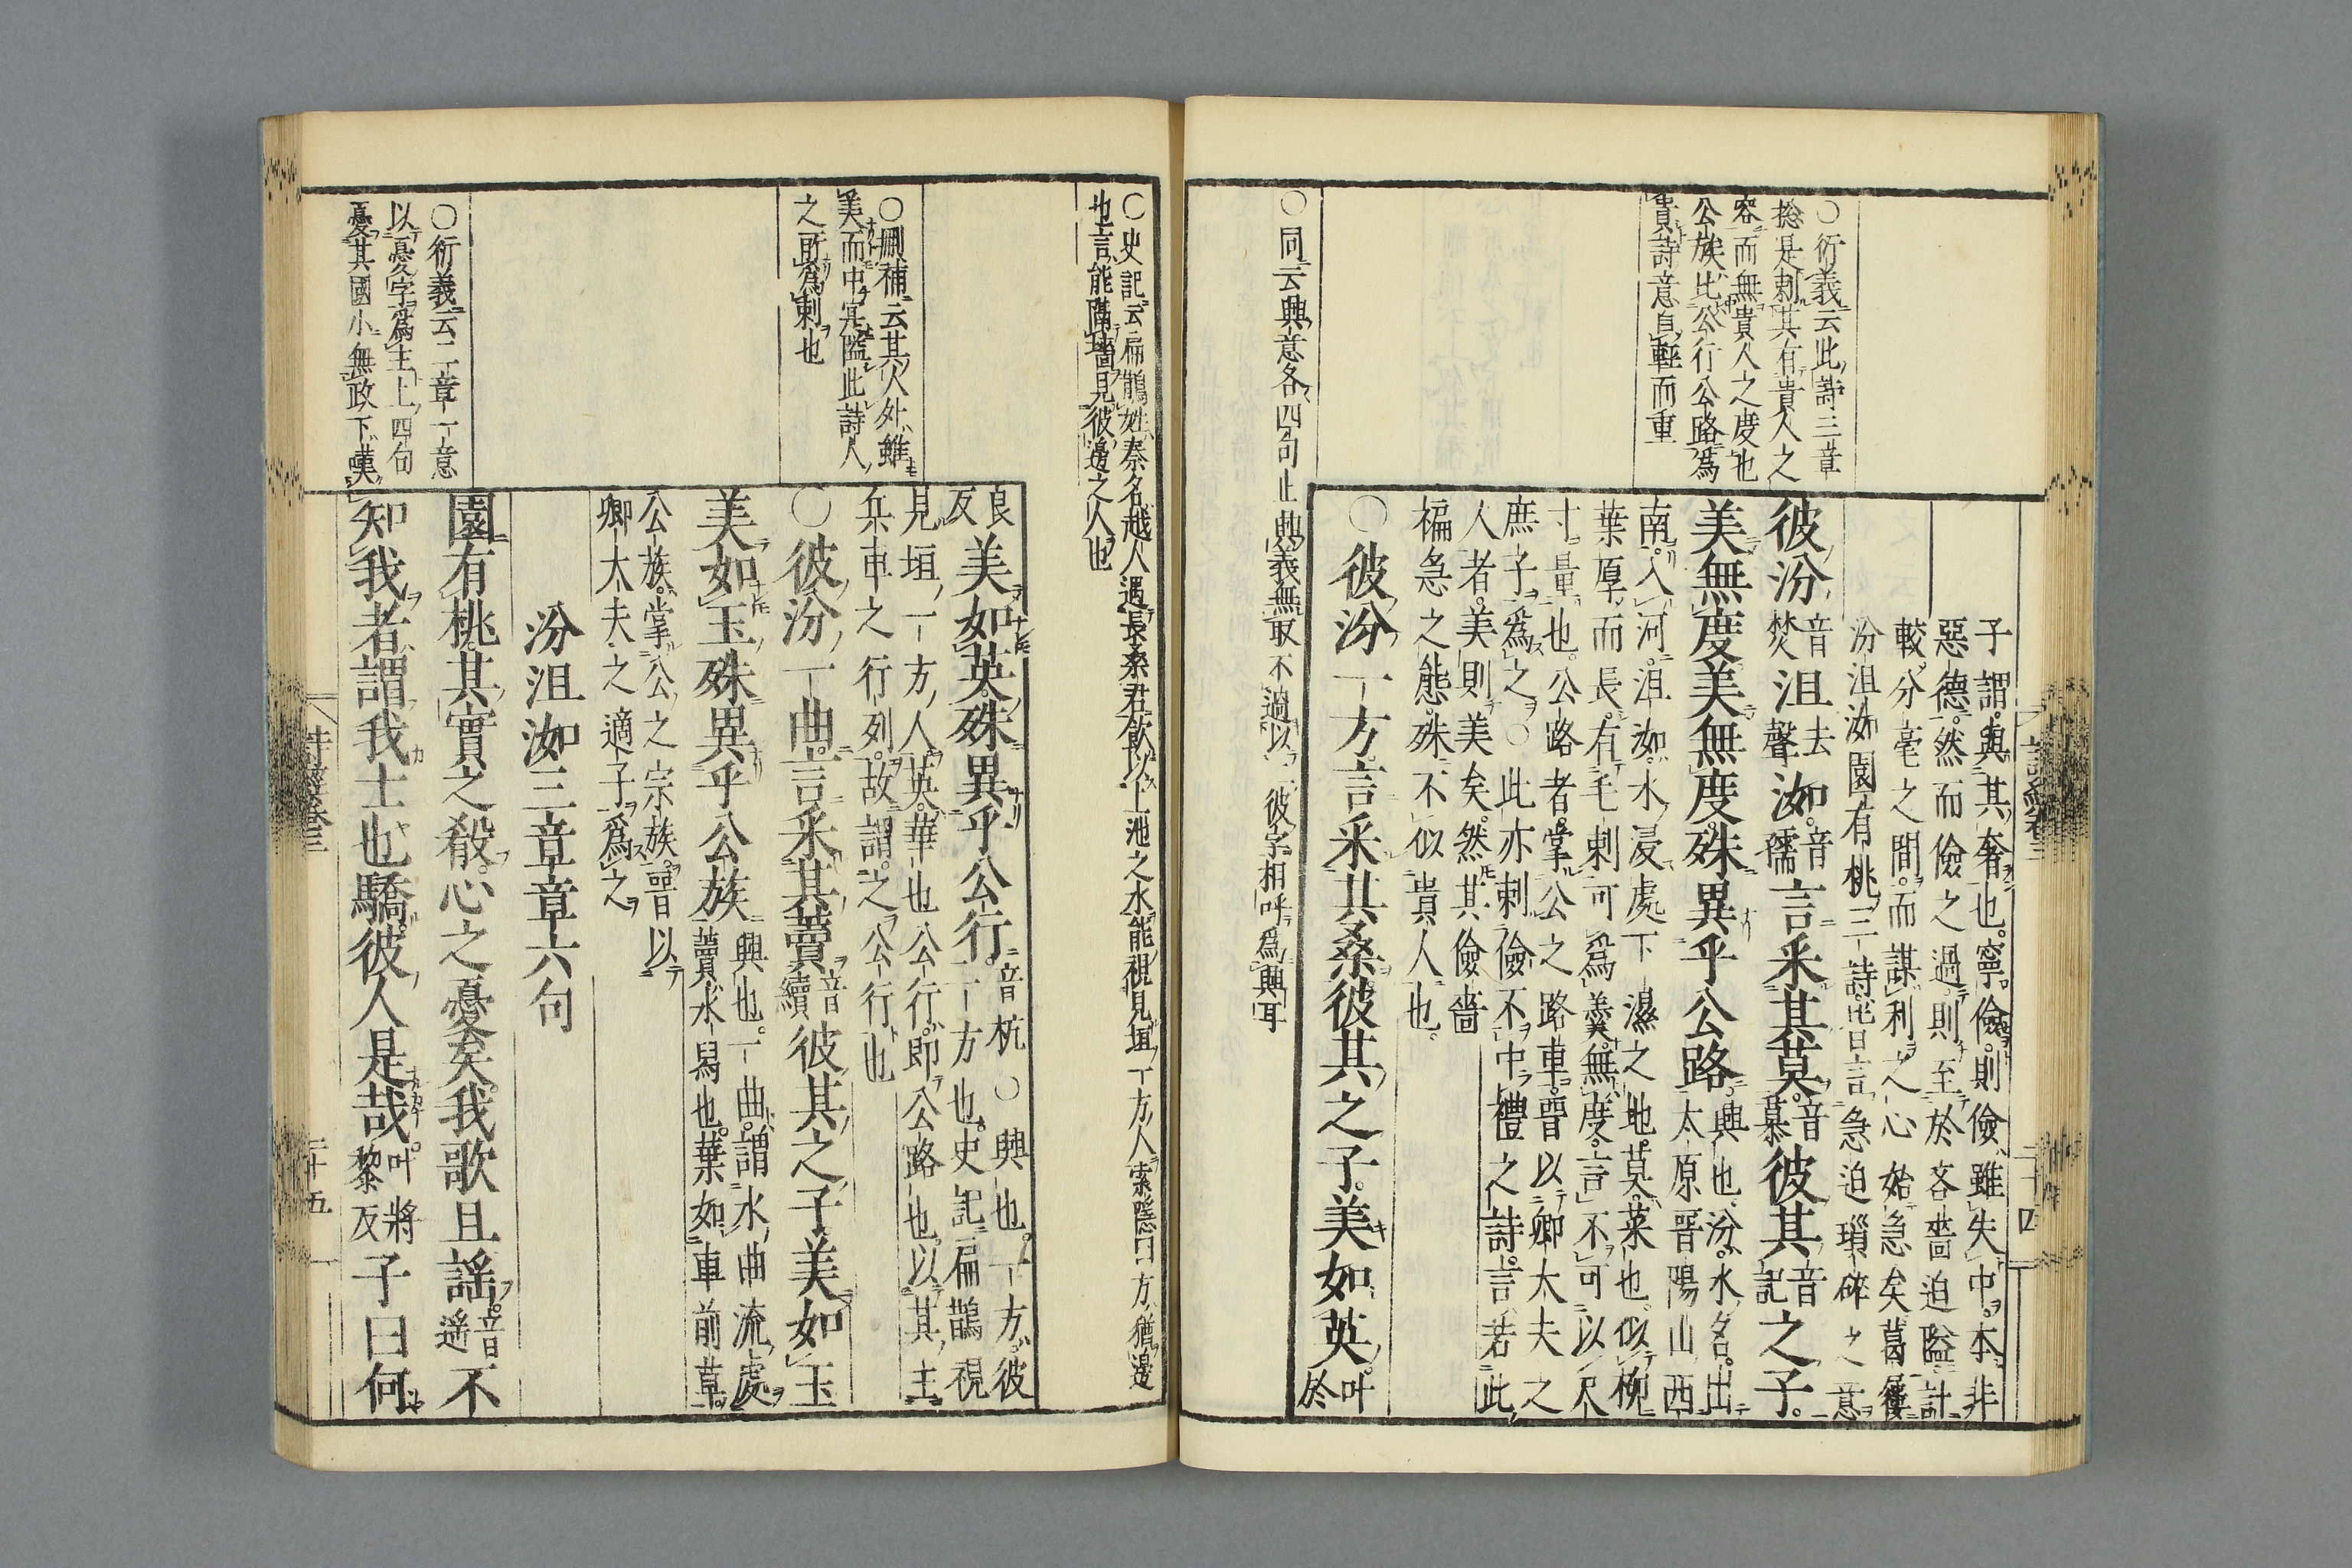 ○衍義云此詩三章
捴是刺其有貴人之
容而無貴人之度也
公族比公行公路爲
貴詩意自輕而重
子謂與其奢也寧儉則儉雖失中本非
惡德然而儉之過則至於吝嗇迫隘計
較分毫之間而謀利之心始急矣葛屨
汾沮洳園有桃三詩皆言急迫瑣碎之意
彼汾音焚沮去聲洳音孺言采其莫音慕彼其音記之子
美無度美無度殊異乎公路
興也汾水名出太原晉陽山西
南入河沮洳水浸處下濕之地莫菜也似柳
葉厚而長有毛刺可爲羹無度言不可以尺
寸量也公路者掌公之路車晉以卿大夫之
庶子爲之○此亦刺儉不中禮之詩言若此
人者美則美矣然其儉嗇
褊急之態殊不似貴人也
○彼汾一方言采其桑彼其之子美如英叶於
○同云興意各四句止興義無取不過以二彼字相呼爲興耳
○史記云扁鵲姓秦名越人遇長桑君飲以上池之水能視見垣一方人索隱曰方猶邊
也言能隔墻見彼邊之人也
良反美如英殊異乎公行
音杭○興也一方彼
一方也史記扁鵲視
見垣一方人英華也公行即公路也以其主
兵車之行列故謂之公行也
○刪補云其人外雖
美而中寔隘此詩人
之所爲刺也
○彼汾一曲言采其藚音續彼其之子美如玉
美如玉殊異乎公族
興也一曲謂水曲流處
藚水舄也葉如車前草
公族掌公之宗族晉以
卿大夫之適子爲之
汾沮洳三章章六句
○衍義云二章一意
以憂字爲主上四句
憂其國小無政下嘆
園有桃其實之殽心之憂矣我歌且謠音遙不
知我者謂我士也驕彼人是哉叶將黎反子曰何
詩經卷三
二十四
詩經卷三
二十五